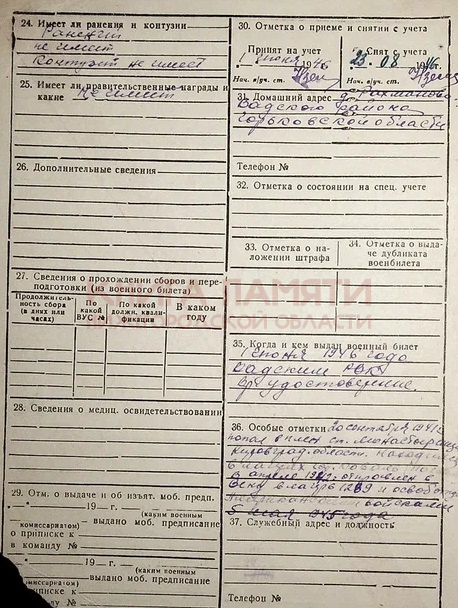 24. Имеет ли ранения и контузии
Ранений
не имеет
Контузий не имеет
25. Имеет ли правительственные награды и
какие не имеет
26. Дополнительные сведения
27. Сведения о прохождении сборов и пере-
подготовки (из военного билета)
Продолжитель-
ность сбора
(в днях или
часах)
По
какой
ВУС №
По какой
должн. квали-
фикации
В каком
году
28. Сведения о медиц. освидетельствовании
29. Отм. о выдаче и об изъят. моб. предп.
19— г.
(каким военным
комиссариатом)
выдано моб. предписание
о приписке к
в команду №
19— г.
(каким военным
комиссариатом)
выдано моб. предписание
о приписке к
команду №
30. Отметка о приеме и снятии с учета
Принят на учет
1 июня 1946
Нач. в/уч. ст.
Снят с учета
23.08 1946г.
Нач. в/уч. ст.
31. Домашний адрес
Вадского района
Горьковской области
Телефон №
32. Отметка о состоянии на спец. учете
33. Отметка о на-
ложении штрафа
34. Отметка о выда-
че дубликата
военбилета
35. Когда и кем выдан военный билет
1 июня 1946 года
Вадским РВК
вр. удостоверение.
36. Особые отметки 20 сентября 1941г.
попал в плен ст.
Кировград. области.
в лагерях
в апреле отправлен в
в лагерь и освоб.
войсками
5 мая 1945 года
37. Служебный адрес и должность
Телефон №
ПАМЯТИ
ОБЛАСТИ